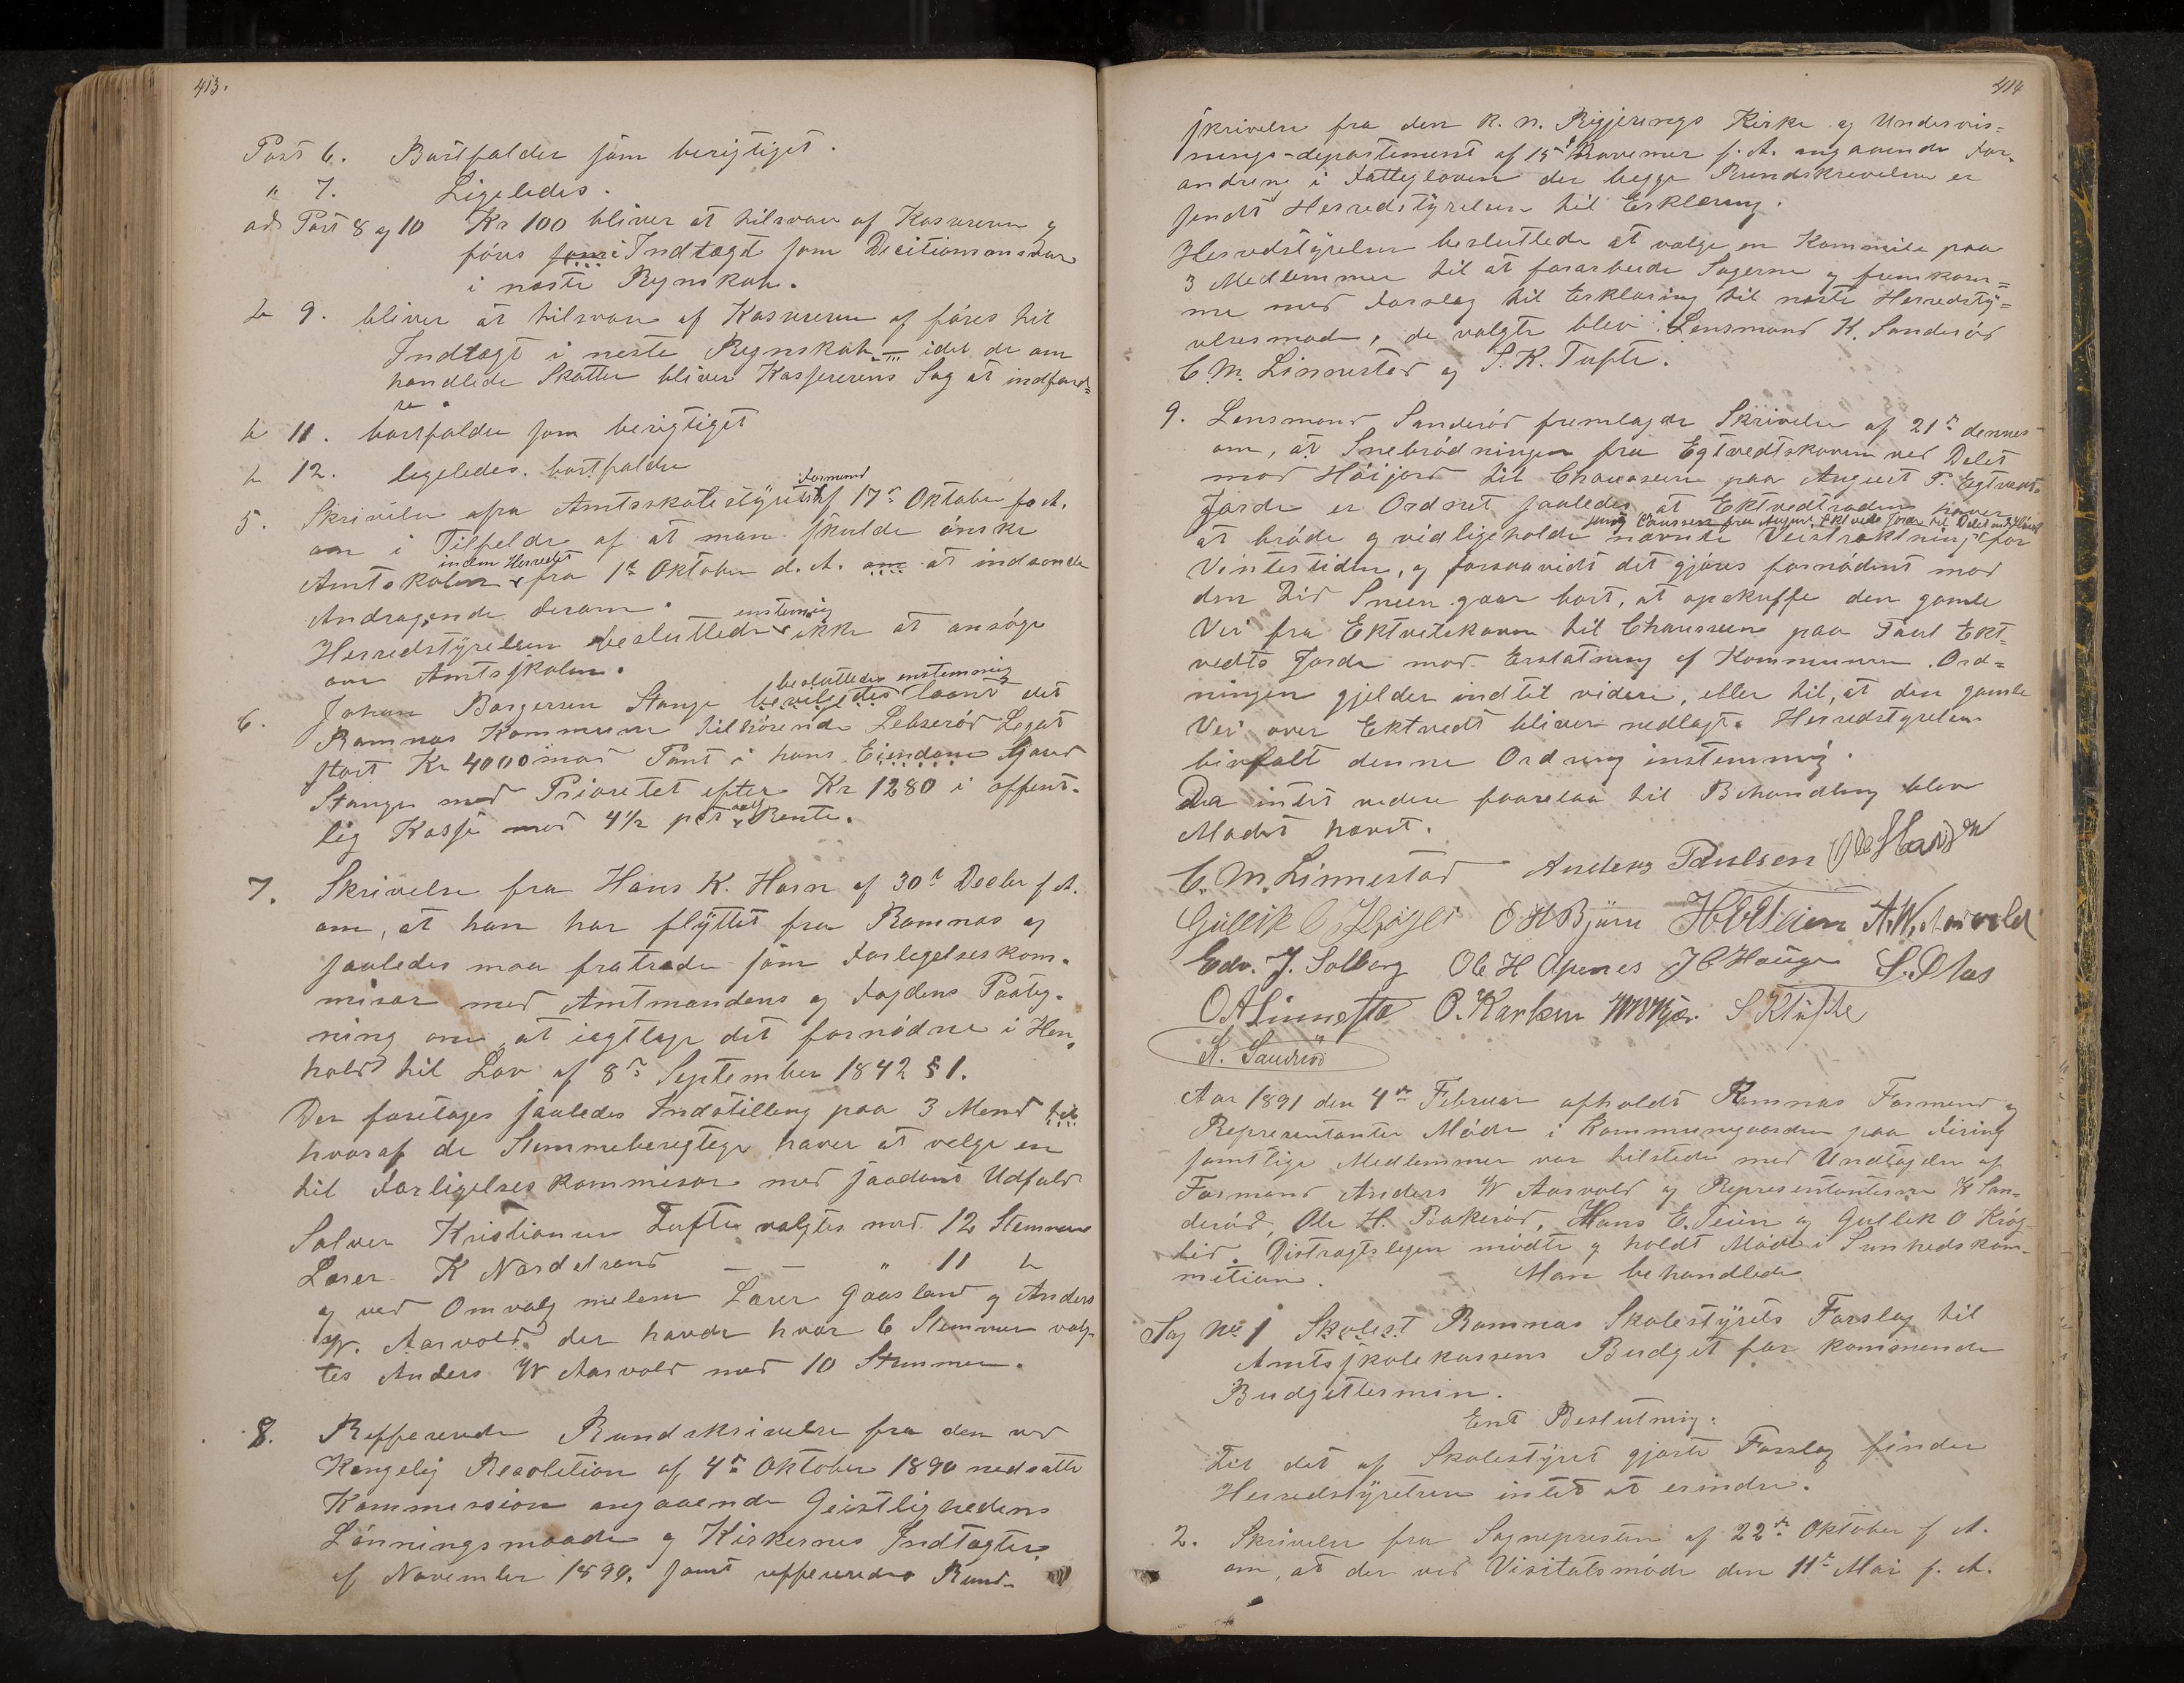 413.
Post 6. Bortfalder som berigtiget.
" 7. Ligeledes.
ad Post 8 og 10 Kr 100 bliver at tilsvare af Kassereren og
føres som i Indtægt som Decitionsansvar
i næste Regnskab.
" 9. bliver at tilsvare af Kassereren og føres til
Indtægt i neste Regnskab. — idet de om
handlede Skatter bliver Kassererens Sag at indford=
re.
" 11. bortfalder som berigtiget
" 12. ligeledes bortfalder
5. Skrivelse fra Amtsskolestyrets Formand af 17de Oktober f. A.
om i Tilfelde af at man skulde ønske
Amtskolen inden Herredet fra 1ste Oktober d. A. om at indsende
Andragende derom.
Herredstyrelsen besluttede enstemig ikke at ansøge
om Amtsskolen.
6. Johan Borgersen Stange bevilgedes besluttedes enstemmig laant det
Ramnæs Kommune tilhørende Lebserød Legat
stort Kr 4000 mod Pant i hans Eiendom Gaard
Stange med Prioretet efter Kr 1280 i offent-
lig Kasse mod 4½ pct aarlig Rente.
7. Skrivelse fra Hans K. Horn af 30te Decbr f. A.
om, at han har flyttet fra Ramnæs og
saaledes maa fratræde som Forlegelseskom-
misær med Amtmandens og Fogdens Paateg-
ning om at iagttage det fornødne i Hen-
hold til Lov af 8de September 1842 § 1.
Der foretages saaledes Indstilling paa 3 Mend til
hvoraf de Stemmeberegtege haver at velge en
til Forligelseskommisær med saadant Udfald
Salver Kristiansen Tufte valgtes med 12 Stemmer
Lærer K Nordstrand — — " 11 "
og ved Omvalg melem Lærer Gaasland og Anders
W. Aarvold der havde hver 6 Stemmer valg-
tes Anders W Aarvold med 10 Stemmer.
8. Refferende Rundskrivelse fra den ved
Kongelig Resolution af 4de Oktober 1890 nedsatte
Kommission angaaende Geistlighedens
Lønningsmaade og Kirkernes Indtægter
af November 1890. samt reffereredes Rund-
414
skrivelse fra den K. n. Regjerings Kirke og Undervis=
nings-departement af 15de November f. A. angaaende For-
andring i Fattigloven der begge Rundskrivelser er
sendt Herredstyrelsen til Erklæring.
Herredstyrelsen besluttede at vælge en Kommite paa
3 Medlemmer til at forarbeide Sagerne og fremkom=
me med Forslag til Erklæring til næste Herredsty=
relsesmøde, de valgte blev: Lensmand K. Sanderød
C. M. Linnestad og S. K. Tufte.
9. Lensmand Sanderød fremlagde Skrivelse af 21de dennes
om, at Snebrødningen fra Egtvedtskoven ved Delet
mod Høijord til Chauseen paa August T. Egtvedts
Jorde er Ordnet saaledes at Ektvedtroden haver
at brøde og vidligeholde nævnte Veistrækning fra August Ektvedts Jorde til Delet mod Høijord for
Vintertiden, og forsaavidt det gjøres fornødent mod
den Tid Sneen gaar bort, at opskuffe den gamle
Vei fra Ektvetskoven til Chausseen paa Paul Ekt=
vedts Jorde mod Erstatning af Kommunen. Ord=
ningen gjelder indtil videre, eller til, at den gamle
Vei over Ektvedt bliver nedlagt. Herredstyrelsen
bifalt denne Ordning instemmig.
Da intet videre forelaa til Behandling blev
Mødet hævet.
C. M. Linnestad Anders Paulsen
Gullik O Krøgli O H Bjørn H E Teien A. W. Aarvold
Edv. J. Solberg Ole H Apenes J C Hauge S. Olas
O A Linnesta O. Karlsen S K Tufte
K. Sanderød
Aar 1891 den 4de Februar afholdt Ramnæs Formend og
Representanter Møde i Kommunegaarden paa Firing
samtlige Medlemmer var tilstede med Undtagelse af
Formand Anders W Aarvold og Representanterne K San-
derød, Ole H. Bakerød, Hans E. Teien og Gullek O Krøg-
lid. Distragtslegen mødte og holdt Møde i Sunhedskom-
mition. Man behandlede
Sag No 1 Skolest Ramnæs Skolestyrets Forslag til
Amtsskolekassens Budget for kommende
Budgettermin.
Ent Beslutning:
Til det af Skolestyret gjorte Forslag finder
Herredstyrelsen intet at erindre.
2. Skrivelse fra Sognepresten af 22de Oktober f. A.
om, at der ved Visitatsmøde den 11te Mai f. A.